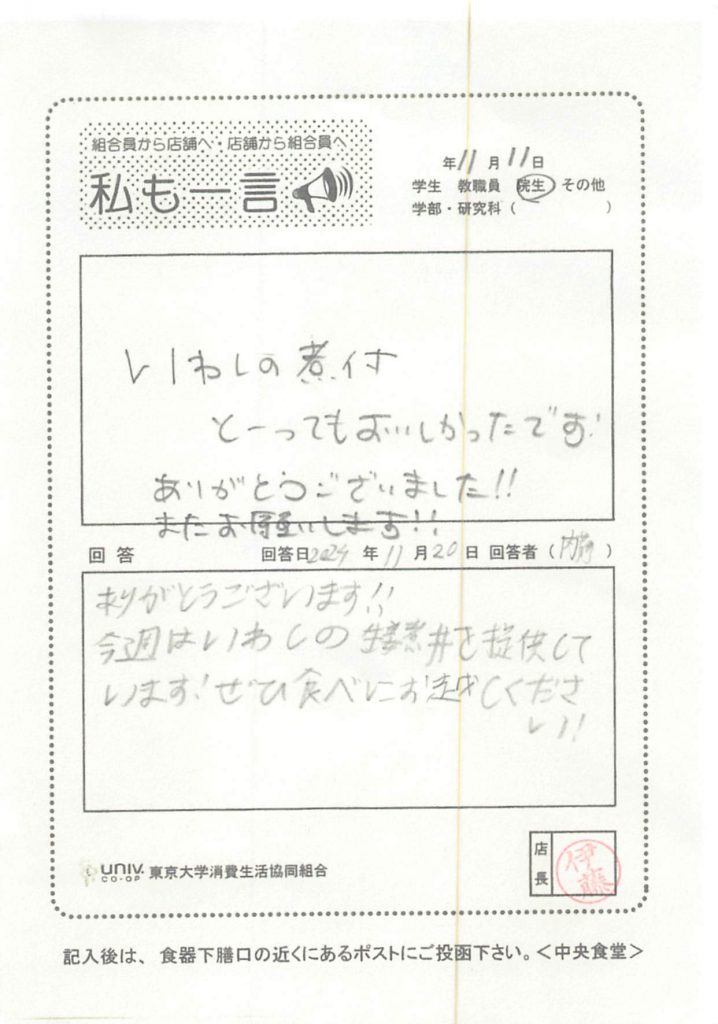 組合員から店舗へ・店舗から組合員へ
私も一言
年11月11日
学生 教職員 院生 その他
学部・研究科( )
いわしの煮付
とーってもおいしかったです!
ありがとうございました!!
またお願いします!!
回答 回答日2024年11月20日 回答者(内藤)
ありがとうございます!!
今週はいわしの生姜煮丼を提供して
います!ぜひ食べにお越しくださ
い!
店長
伊藤
univ. CO-OP 東京大学消費生活協同組合
記入後は、食器下膳口の近くにあるポストにご投函下さい。<中央食堂>